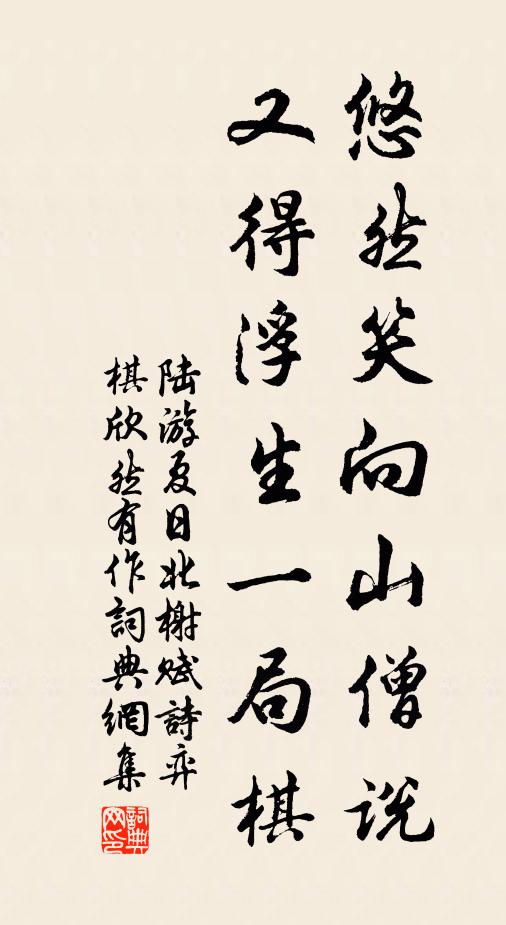 悠然笑向山僧说
又得浮生一局棋
陆游夏日北榭赋詩弈
棋欣然有作詞典網集
詞典
网印